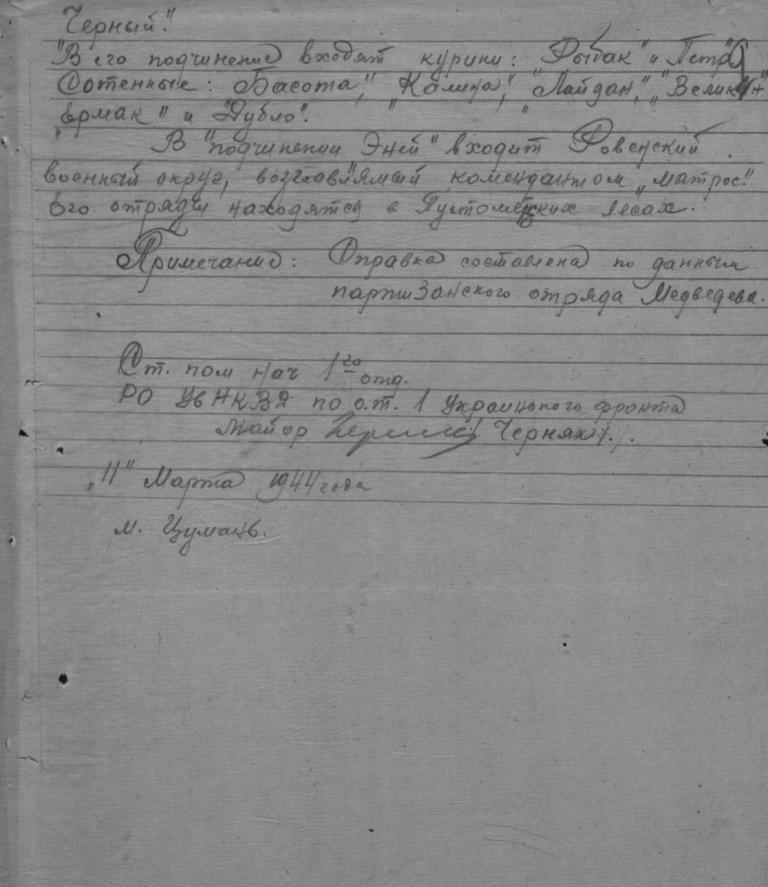 Черный".
"В его подчинение входят курини: "Рыбак" и "Петря"
Сотенные: "Басота", "Калина", "Лайдан", "Великан"
"Ермак" и "Дубло".
В подчинении "Эней" входит Ровенский
военный округ, возглавлямый комендантом "Матрос".
Его отряды находятся в Пустомецких лесах.
Примечание: Справка составлена по данным
партизанского отряда Медведева.
Ст. пом нач 1го отд.
РО УвНКВД по о.т. 1 Украинского фронта
Майор Черняк/.
"11" Марта 1944 года
м. Цумань.